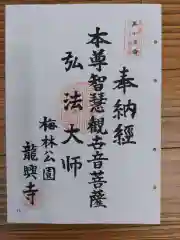 奉納経
本尊智慧観音菩薩
弘法大師
梅林公園
龍興寺